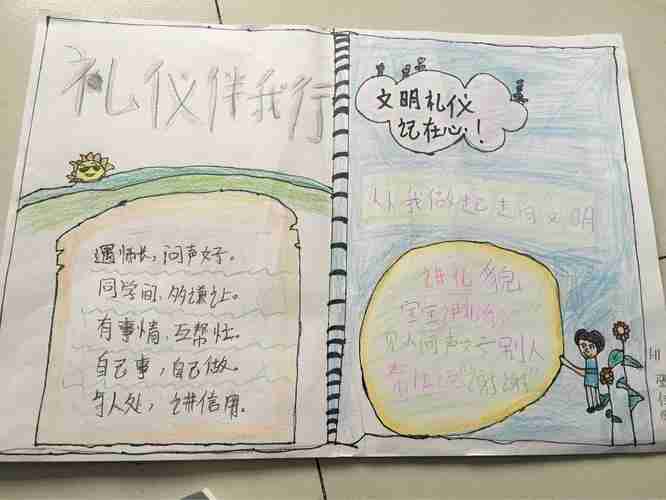 礼仪伴我行
遇师长，问声好。
同学间，多谦让。
有事情，互帮忙。
自己事，自己做。
与人处，讲信用。
文明礼仪
记在心！
从我做起走向文明
讲礼貌
见人问声好别人
帮忙说“谢谢”